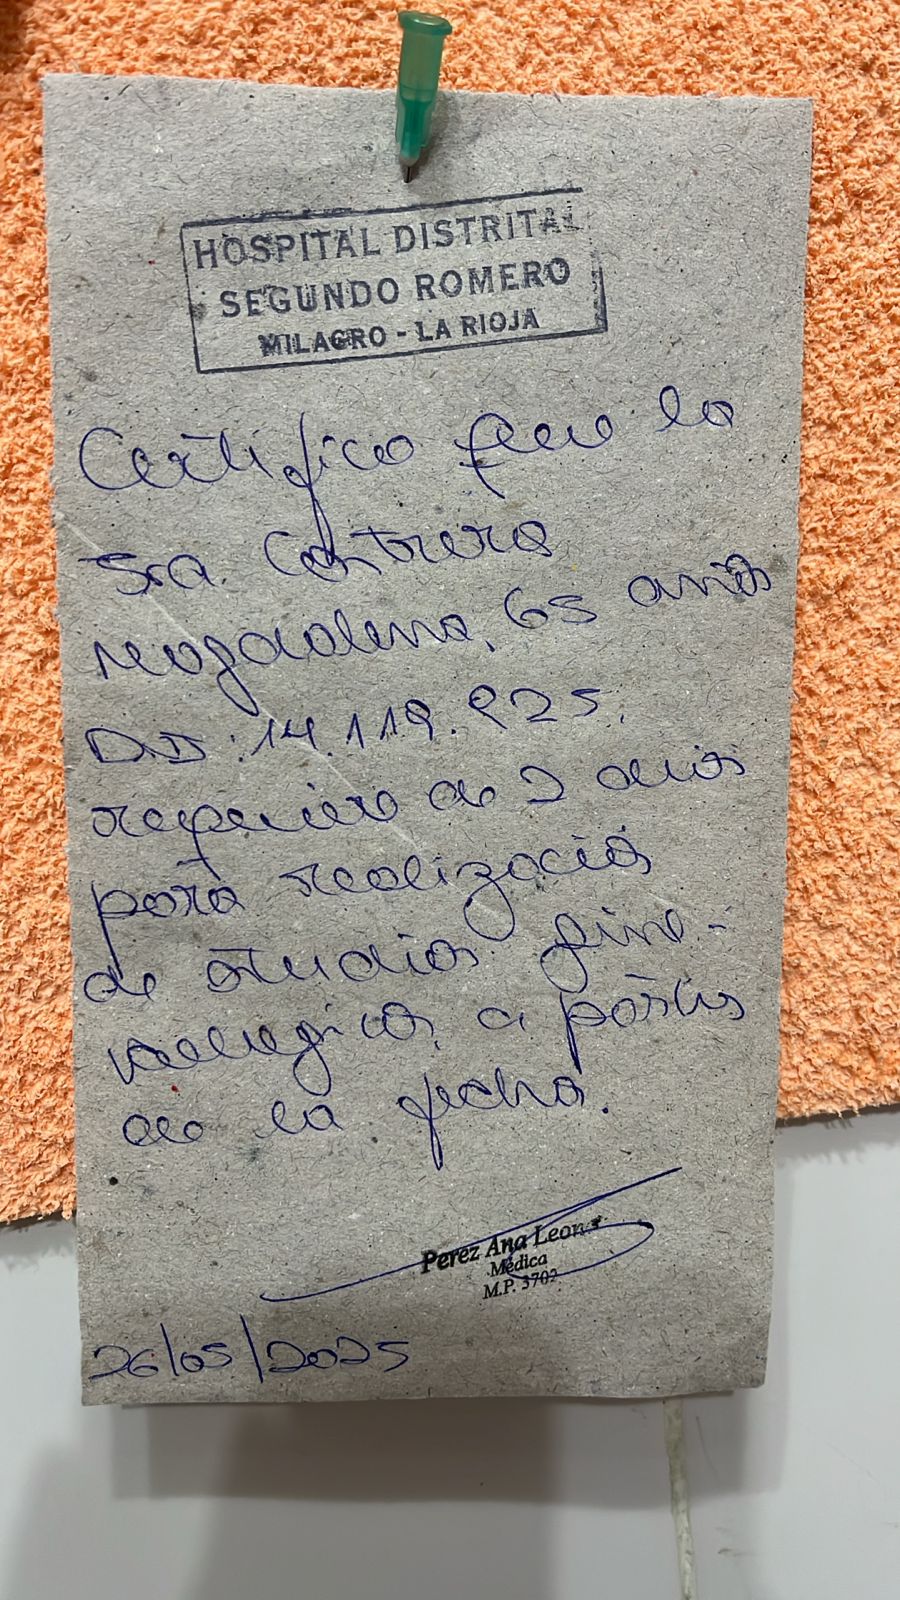 HOSPITAL DISTRITAL
SEGUNDO ROMERO
MILAGRO - LA RIOJA
Certifico que la
Sra. Contrera
Magdalena, 65 años
D.D: 14.119.925.
requiere de 2 dias
para realización
de studios gine-
cologicos, a partir
de la fecha.
Perez Ana Leon
Médica
M.P. 3702
26/05/2025